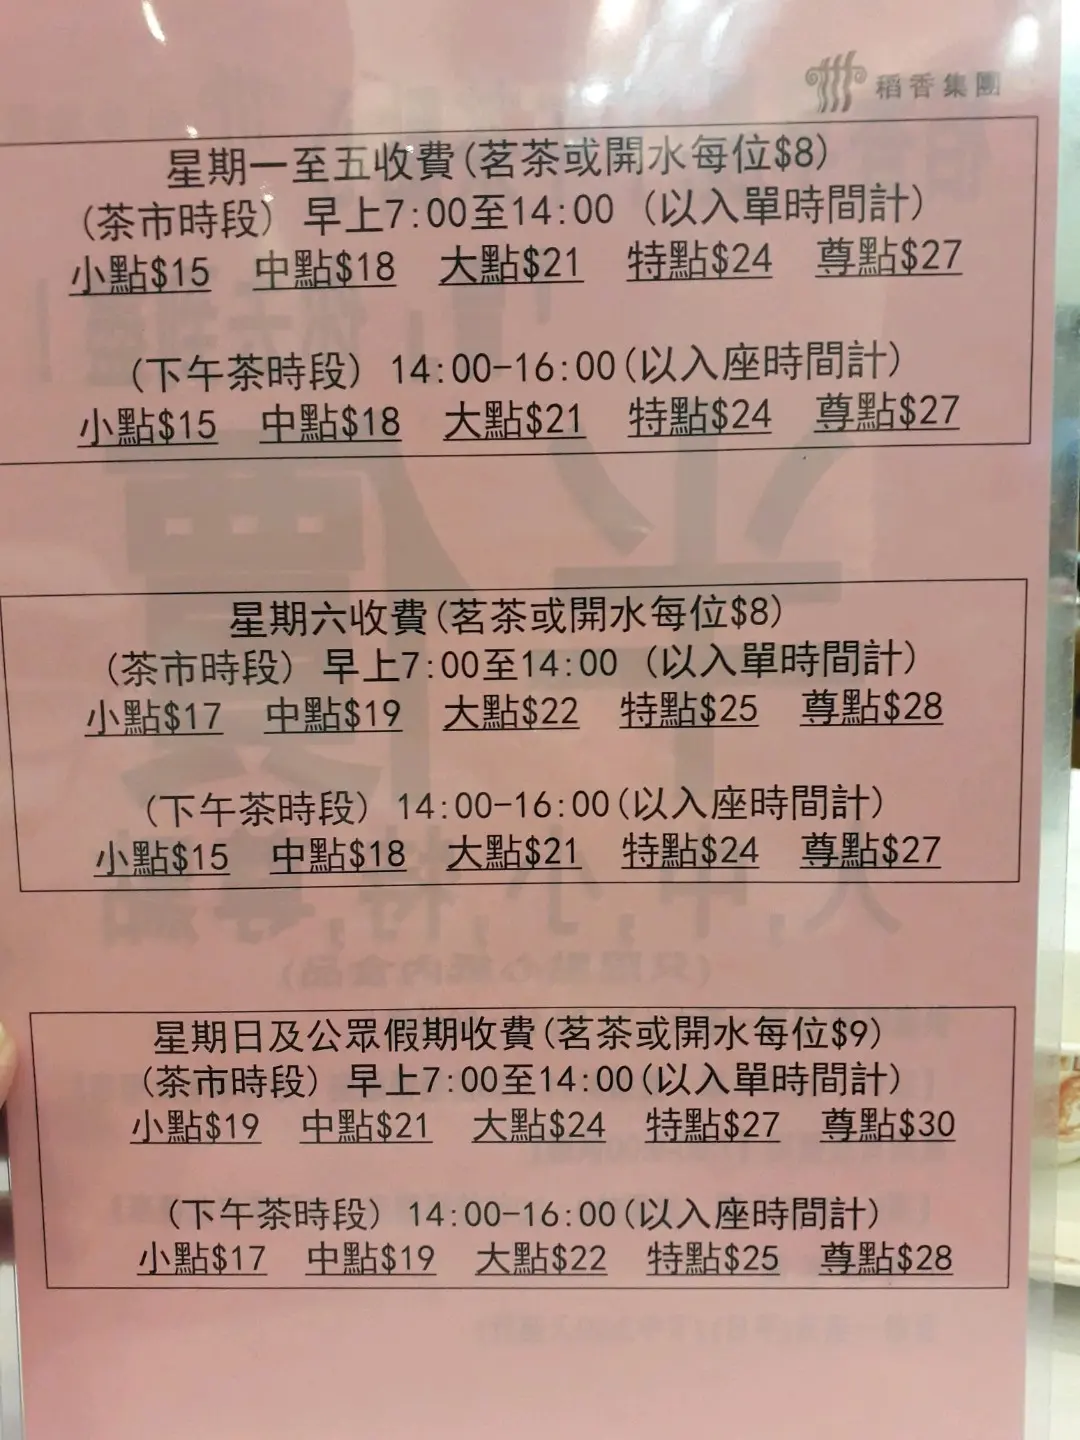 稻香集團
星期一至五收費(茗茶或開水每位$8)
(茶市時段) 早上7:00至14:00 (以入單時間計)
小點$15 中點$18 大點$21 特點$24 尊點$27
(下午茶時段) 14:00-16:00(以入座時間計)
小點$15 中點$18 大點$21 特點$24 尊點$27
星期六收費(茗茶或開水每位$8)
(茶市時段) 早上7:00至14:00 (以入單時間計)
小點$17 中點$19 大點$22 特點$25 尊點$28
(下午茶時段) 14:00-16:00(以入座時間計)
小點$15 中點$18 大點$21 特點$24 尊點$27
星期日及公眾假期收費(茗茶或開水每位$9)
(茶市時段) 早上7:00至14:00(以入單時間計)
小點$19 中點$21 大點$24 特點$27 尊點$30
(下午茶時段) 14:00-16:00(以入座時間計)
小點$17 中點$19 大點$22 特點$25 尊點$28